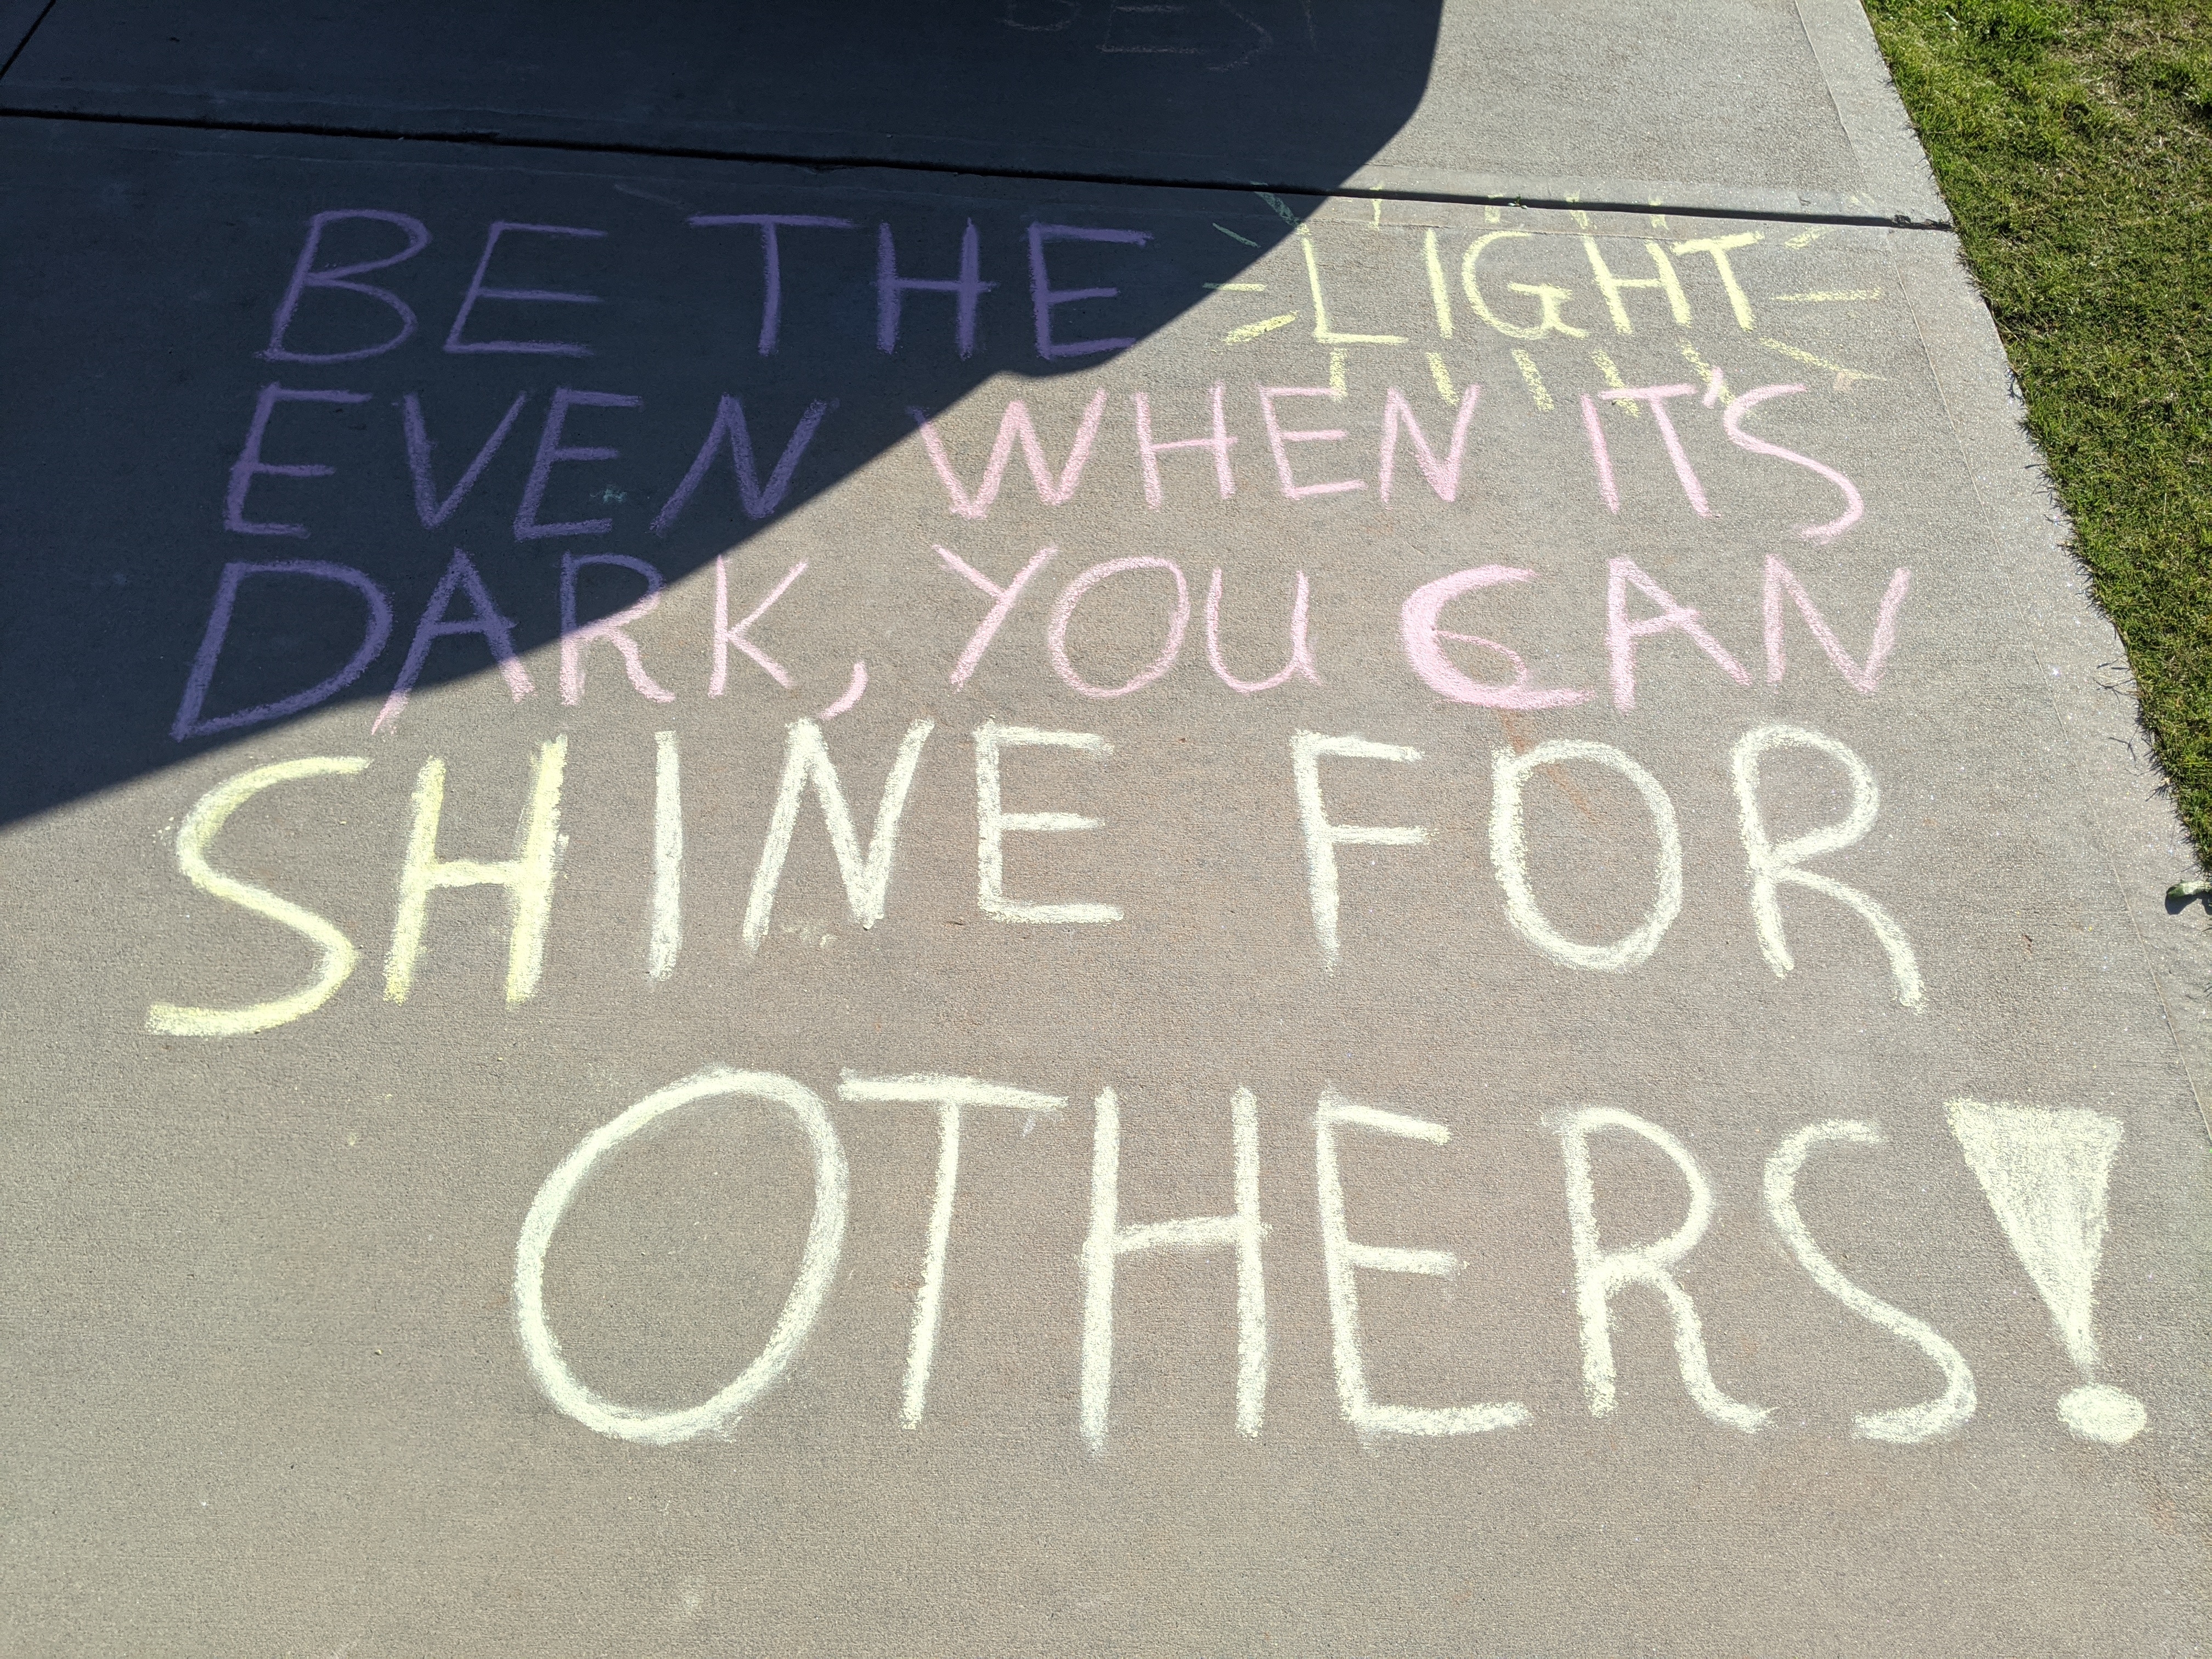 BE THE LIGHT
EVEN WHEN IT'S
DARK, YOU CAN
SHINE FOR
OTHERS!